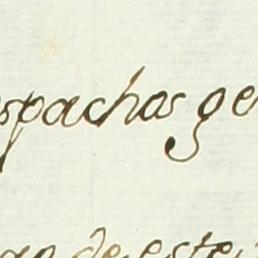 spachos ge
go de este